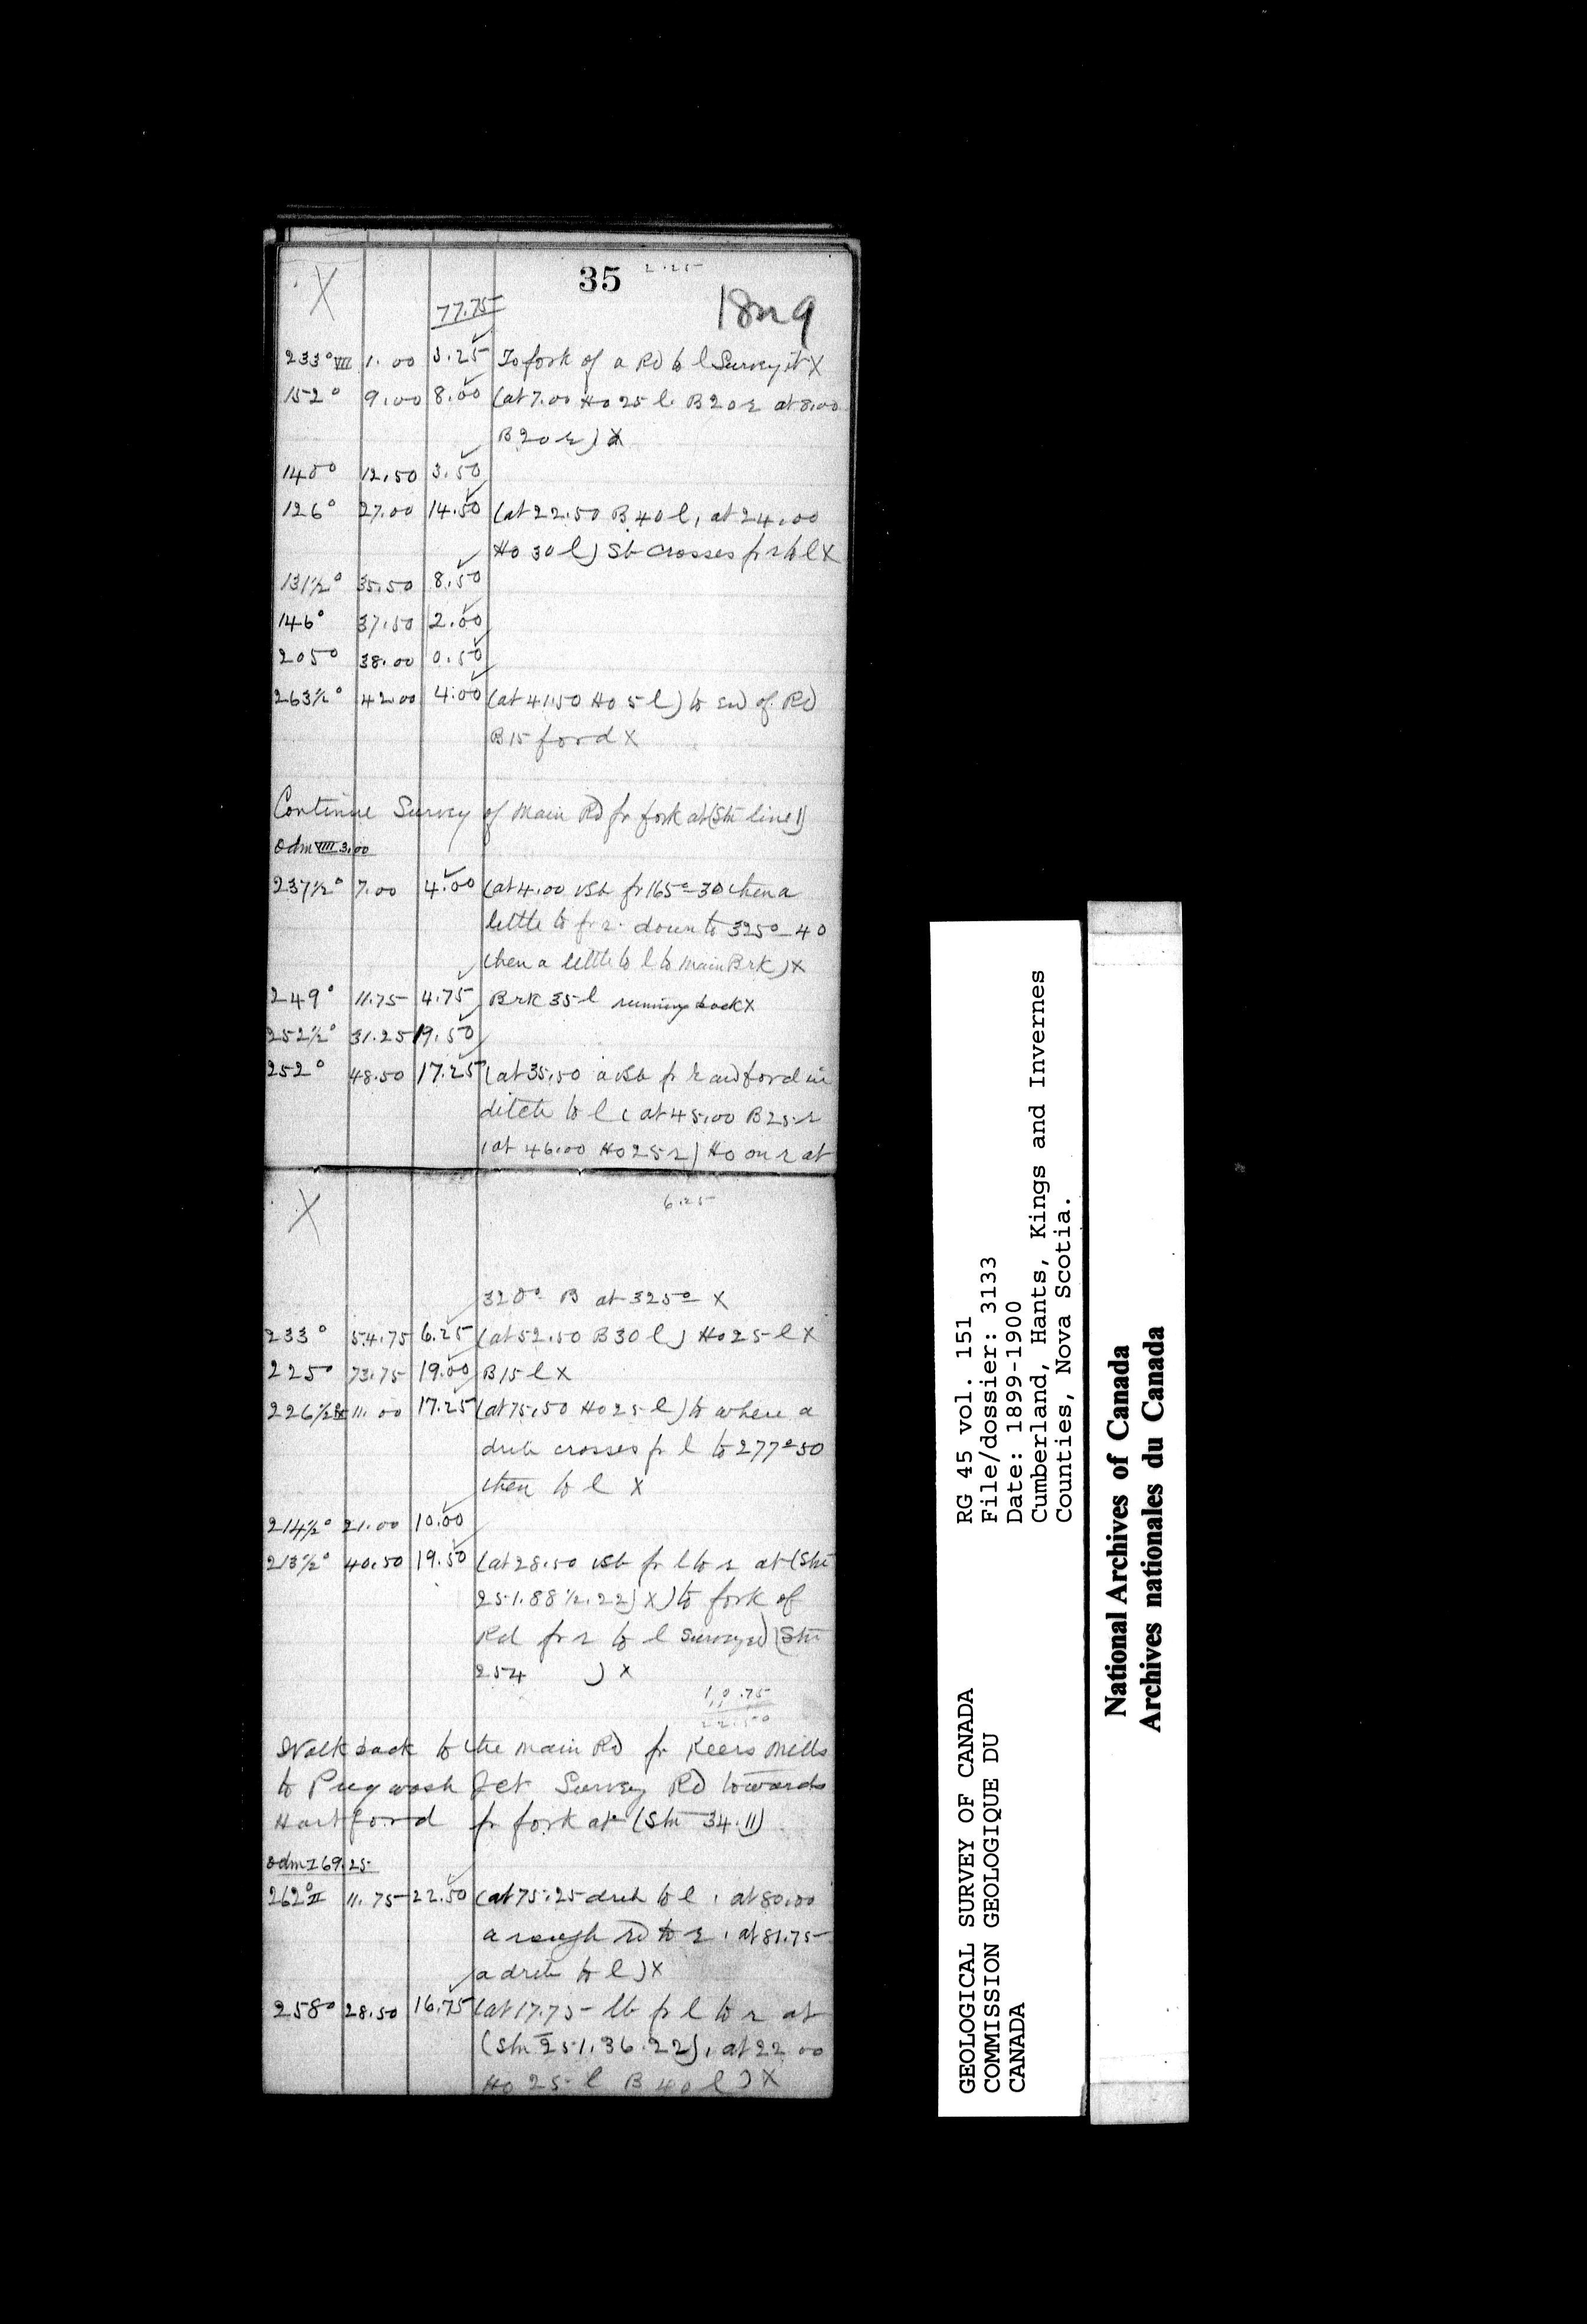 35 2.25
X
77.75
18 n 9
233° VII 1.00 3.25 To fork of a Rd to l Survey it X
152° 9.00 8.00 (at 7.00 Ho 25 l. B 20 r at 8.00
B 20 r) X
140° 12.50 3.50
126° 27.00 14.50 (at 22.50 B 40 l, at 24.00
Ho 30 l) Sb crosses fr r to l X
131½° 35.50 8.50
146° 37.50 2.00
205° 38.00 0.50
263½° 42.00 4.00 (at 41.50 Ho 5 l) to end of Rd
B 15 ford X
Continue Survey of Main Rd fr fork at (Stn line 1)
Odm VIII 3.00
237½° 7.00 4.00 (at 4.00 vsb fr 165°-30 then a
little to fr r. down to 325°-40
then a little to l to Main Brk) X
249° 11.75 4.75 Brk 35 l running back X
252½° 31.25 19.50
252° 48.50 17.25 (at 35.50 a vsb fr r and ford in
ditch to l, at 45.00 B 25 r
, at 46.00 Ho 25 r) Ho on r at
X 6.25
320° B at 325° X
233° 54.75 6.25 (at 52.50 B 30 l) Ho 25 l X
225° 73.75 19.00 B 15 l X
226½° 11.00 17.25 (at 75.50 Ho 25 l) to where a
drith crosses fr l to 277°50
then to l X
214½° 21.00 10.00
213½° 40.50 19.50 (at 28.50 vsb fr l to r at (Stn
251.88½.22) X) to fork of
Rd fr r to l Surveyed (Stn
254 ) X
10.75
22.50
Walk back to the Main Rd fr Keers Mills
to Pugwash Jct Survey Rd towards
Hartford fr fork at (Stn 34.11)
Odm I 69.25
262° II 11.75 22.50 (at 75.25 drith to l, at 80.00
a rough rd to r, at 81.75
a drith to l) X
258° 28.50 16.75 (at 17.75 lb fr l to r at
(Stn 251.36.22), at 22.00
Ho 25 l B 40 l) X
GEOLOGICAL SURVEY OF CANADA
COMMISSION GEOLOGIQUE DU
CANADA
RG 45 vol. 151
File/dossier: 3133
Date: 1899-1900
Cumberland, Hants, Kings and Invernes
Counties, Nova Scotia.
National Archives of Canada
Archives nationales du Canada